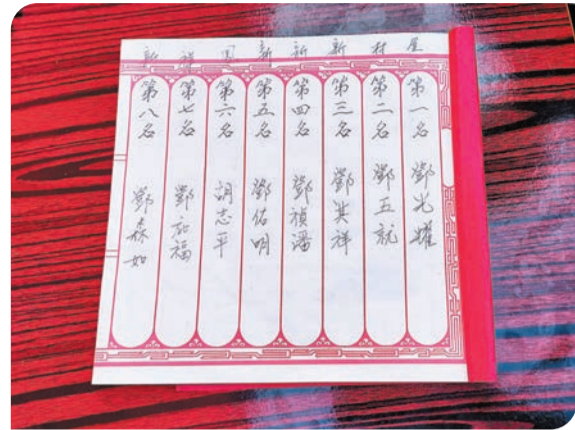 屋 村 新 新 新 圍 祥 新
第一名 鄧光燿
第二名 鄧五就
第三名 鄧英祥
第四名 鄧禎潘
第五名 鄧佑明
第六名 胡志平
第七名 鄧祐福
第八名 鄧森如